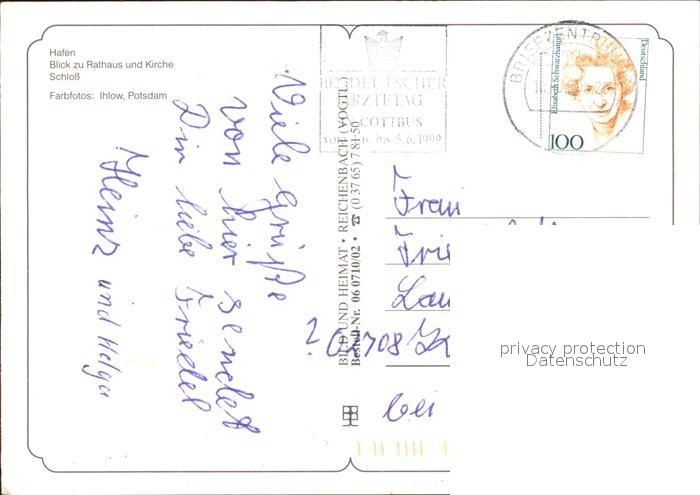 Hafen
Blick zu Rathaus und Kirche
Schloß
Farbfotos: Ihlow, Potsdam
Viele Grüße
von hier sendet
Dir liebe Friedel
Heinz und Helga
BILD UND HEIMAT • REICHENBACH (VOGTL.)
Bestell-Nr. 06 0710/02 • ☎ (0 37 65) 7 81 50
102. DEUTSCHER
ÄRZTETAG
COTTBUS
bis 5.6.1999
BRIEFZENTRUM
Elisabeth Schwarzhaupt
Deutschland
100
Frau
bei
privacy protection
Datenschutz